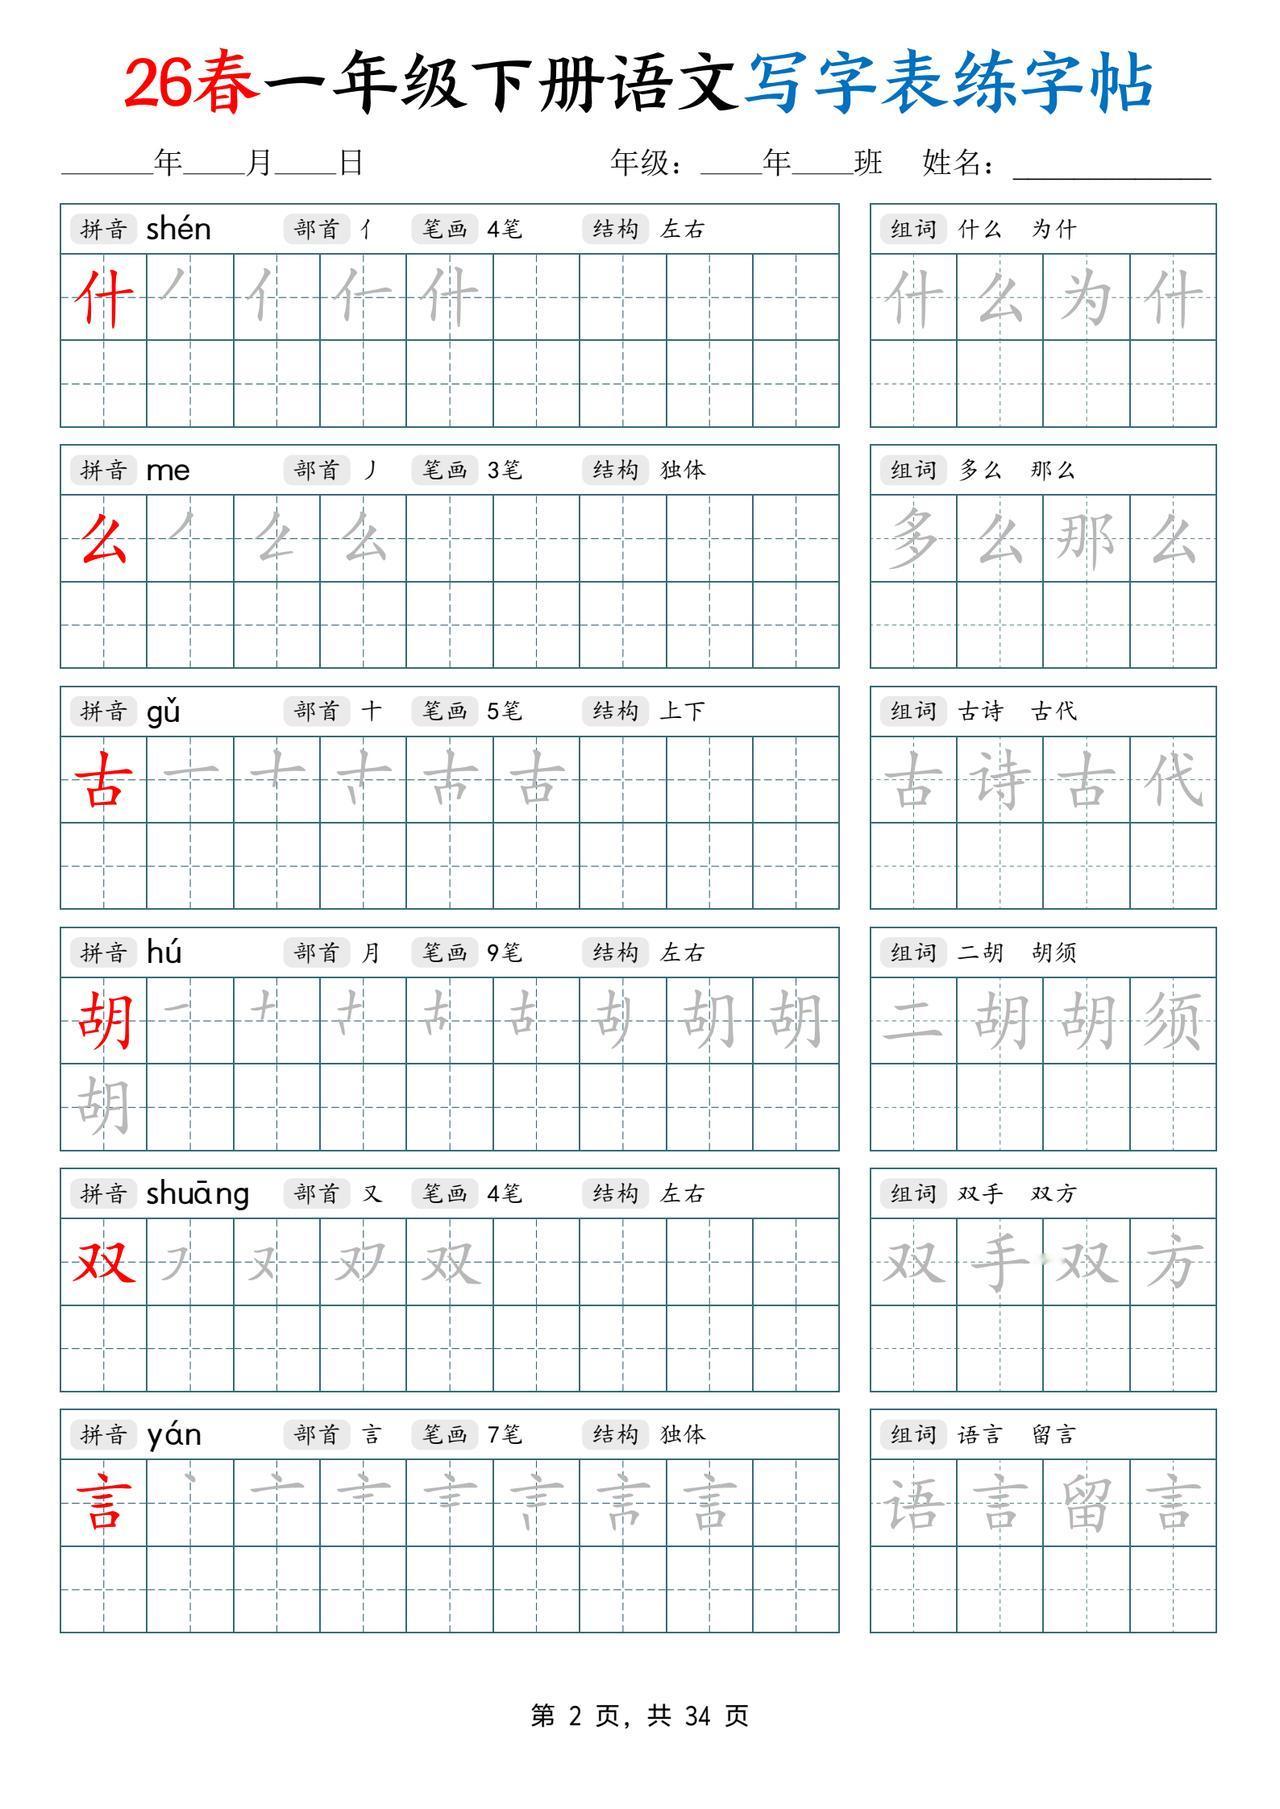 26春一年级下册语文写字表练字帖
______年____月____日 年级：____年____班 姓名：_____________
拼音 shén 部首 亻 笔画 4笔 结构 左右 组词 什么 为什
什 丿 亻 什 什 么 为 什
拼音 me 部首 丿 笔画 3笔 结构 独体 组词 多么 那么
么 丿 么 多 么 那 么
拼音 gǔ 部首 十 笔画 5笔 结构 上下 组词 古诗 古代
古 一 十 古 古 诗 古 代
拼音 hú 部首 月 笔画 9笔 结构 左右 组词 二胡 胡须
胡 一 十 古 胡 二 胡 胡 须
胡
拼音 shuāng 部首 又 笔画 4笔 结构 左右 组词 双手 双方
双 フ 又 双 双 手 双 方
拼音 yán 部首 言 笔画 7笔 结构 独体 组词 语言 留言
言 丶 亠 言 语 言 留 言
第 2 页，共 34 页